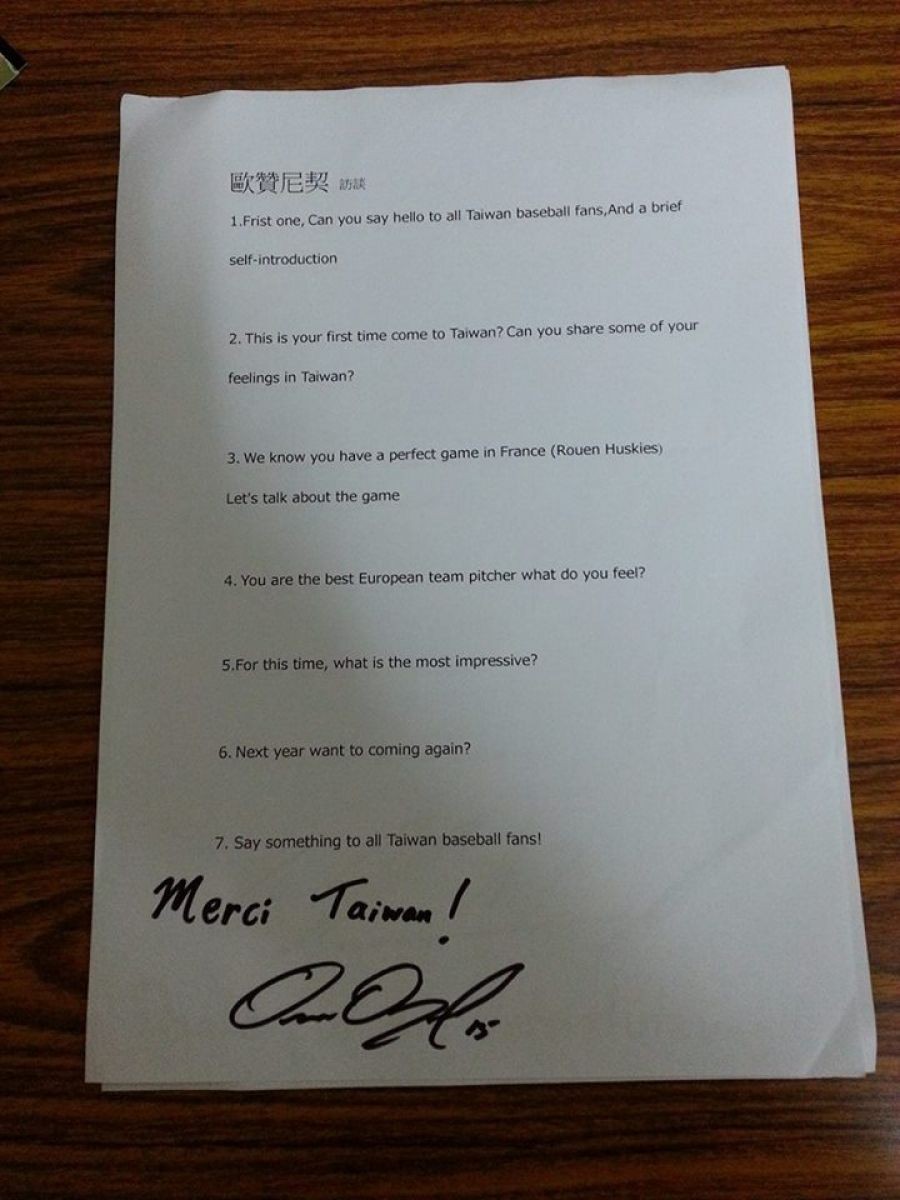 歐贊尼契 訪談
1.Frist one, Can you say hello to all Taiwan baseball fans,And a brief
self-introduction
2. This is your first time come to Taiwan? Can you share some of your
feelings in Taiwan?
3. We know you have a perfect game in France (Rouen Huskies)
Let's talk about the game
4. You are the best European team pitcher what do you feel?
5.For this time, what is the most impressive?
6. Next year want to coming again?
7. Say something to all Taiwan baseball fans!
Merci Taiwan!
15